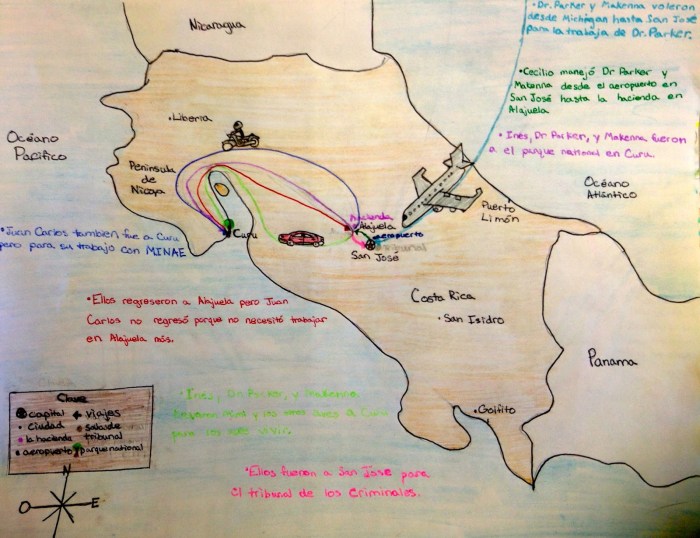 • Dr. Parker y Makenna voleron
desde Michigan hasta San José
para la trabaja de Dr. Parker.
Nicaragua
• Cecilio manejó Dr Parker y
Makenna desde el aeropuerto en
San José hasta la hacienda en
Alajuela
• Liberia
• Ines, Dr Parker, y Makenna fueron
a el parque national en Curu
Océano
Pacífico
Peninsula
de
Nicoya
Océano
Atlántico
Puerto
Limón
hacienda
Alajuela
aeropuerto
tribunal
San José
Curu
• Juan Carlos tambien fue a Curu
pero para su trabajo con MINAE
Costa Rica
• San Isidro
• Ellos regreseron a Alajuela pero Juan
Carlos no regresó porque no necesitó trabajar
en Alajuela más.
Panama
Clave
capital
viajes
ciudad
sala de
tribunal
la hacienda
aeropuerto
parque national
• Ines, Dr. Parker, y Makenna
a Curu
para
vivir.
• Golfito
• Ellos fueron a San Jose para
el tribunal de los criminales.
N
O
E